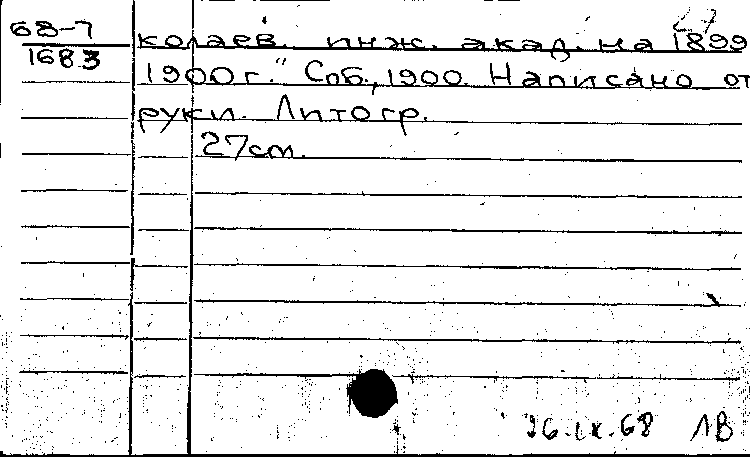 27
68-7 колаев. инж. акад. на 1899
1683 1900 г." Спб., 1900. Написано от
руки. Литогр.
27 cm.
26.IX.68 ЛВ